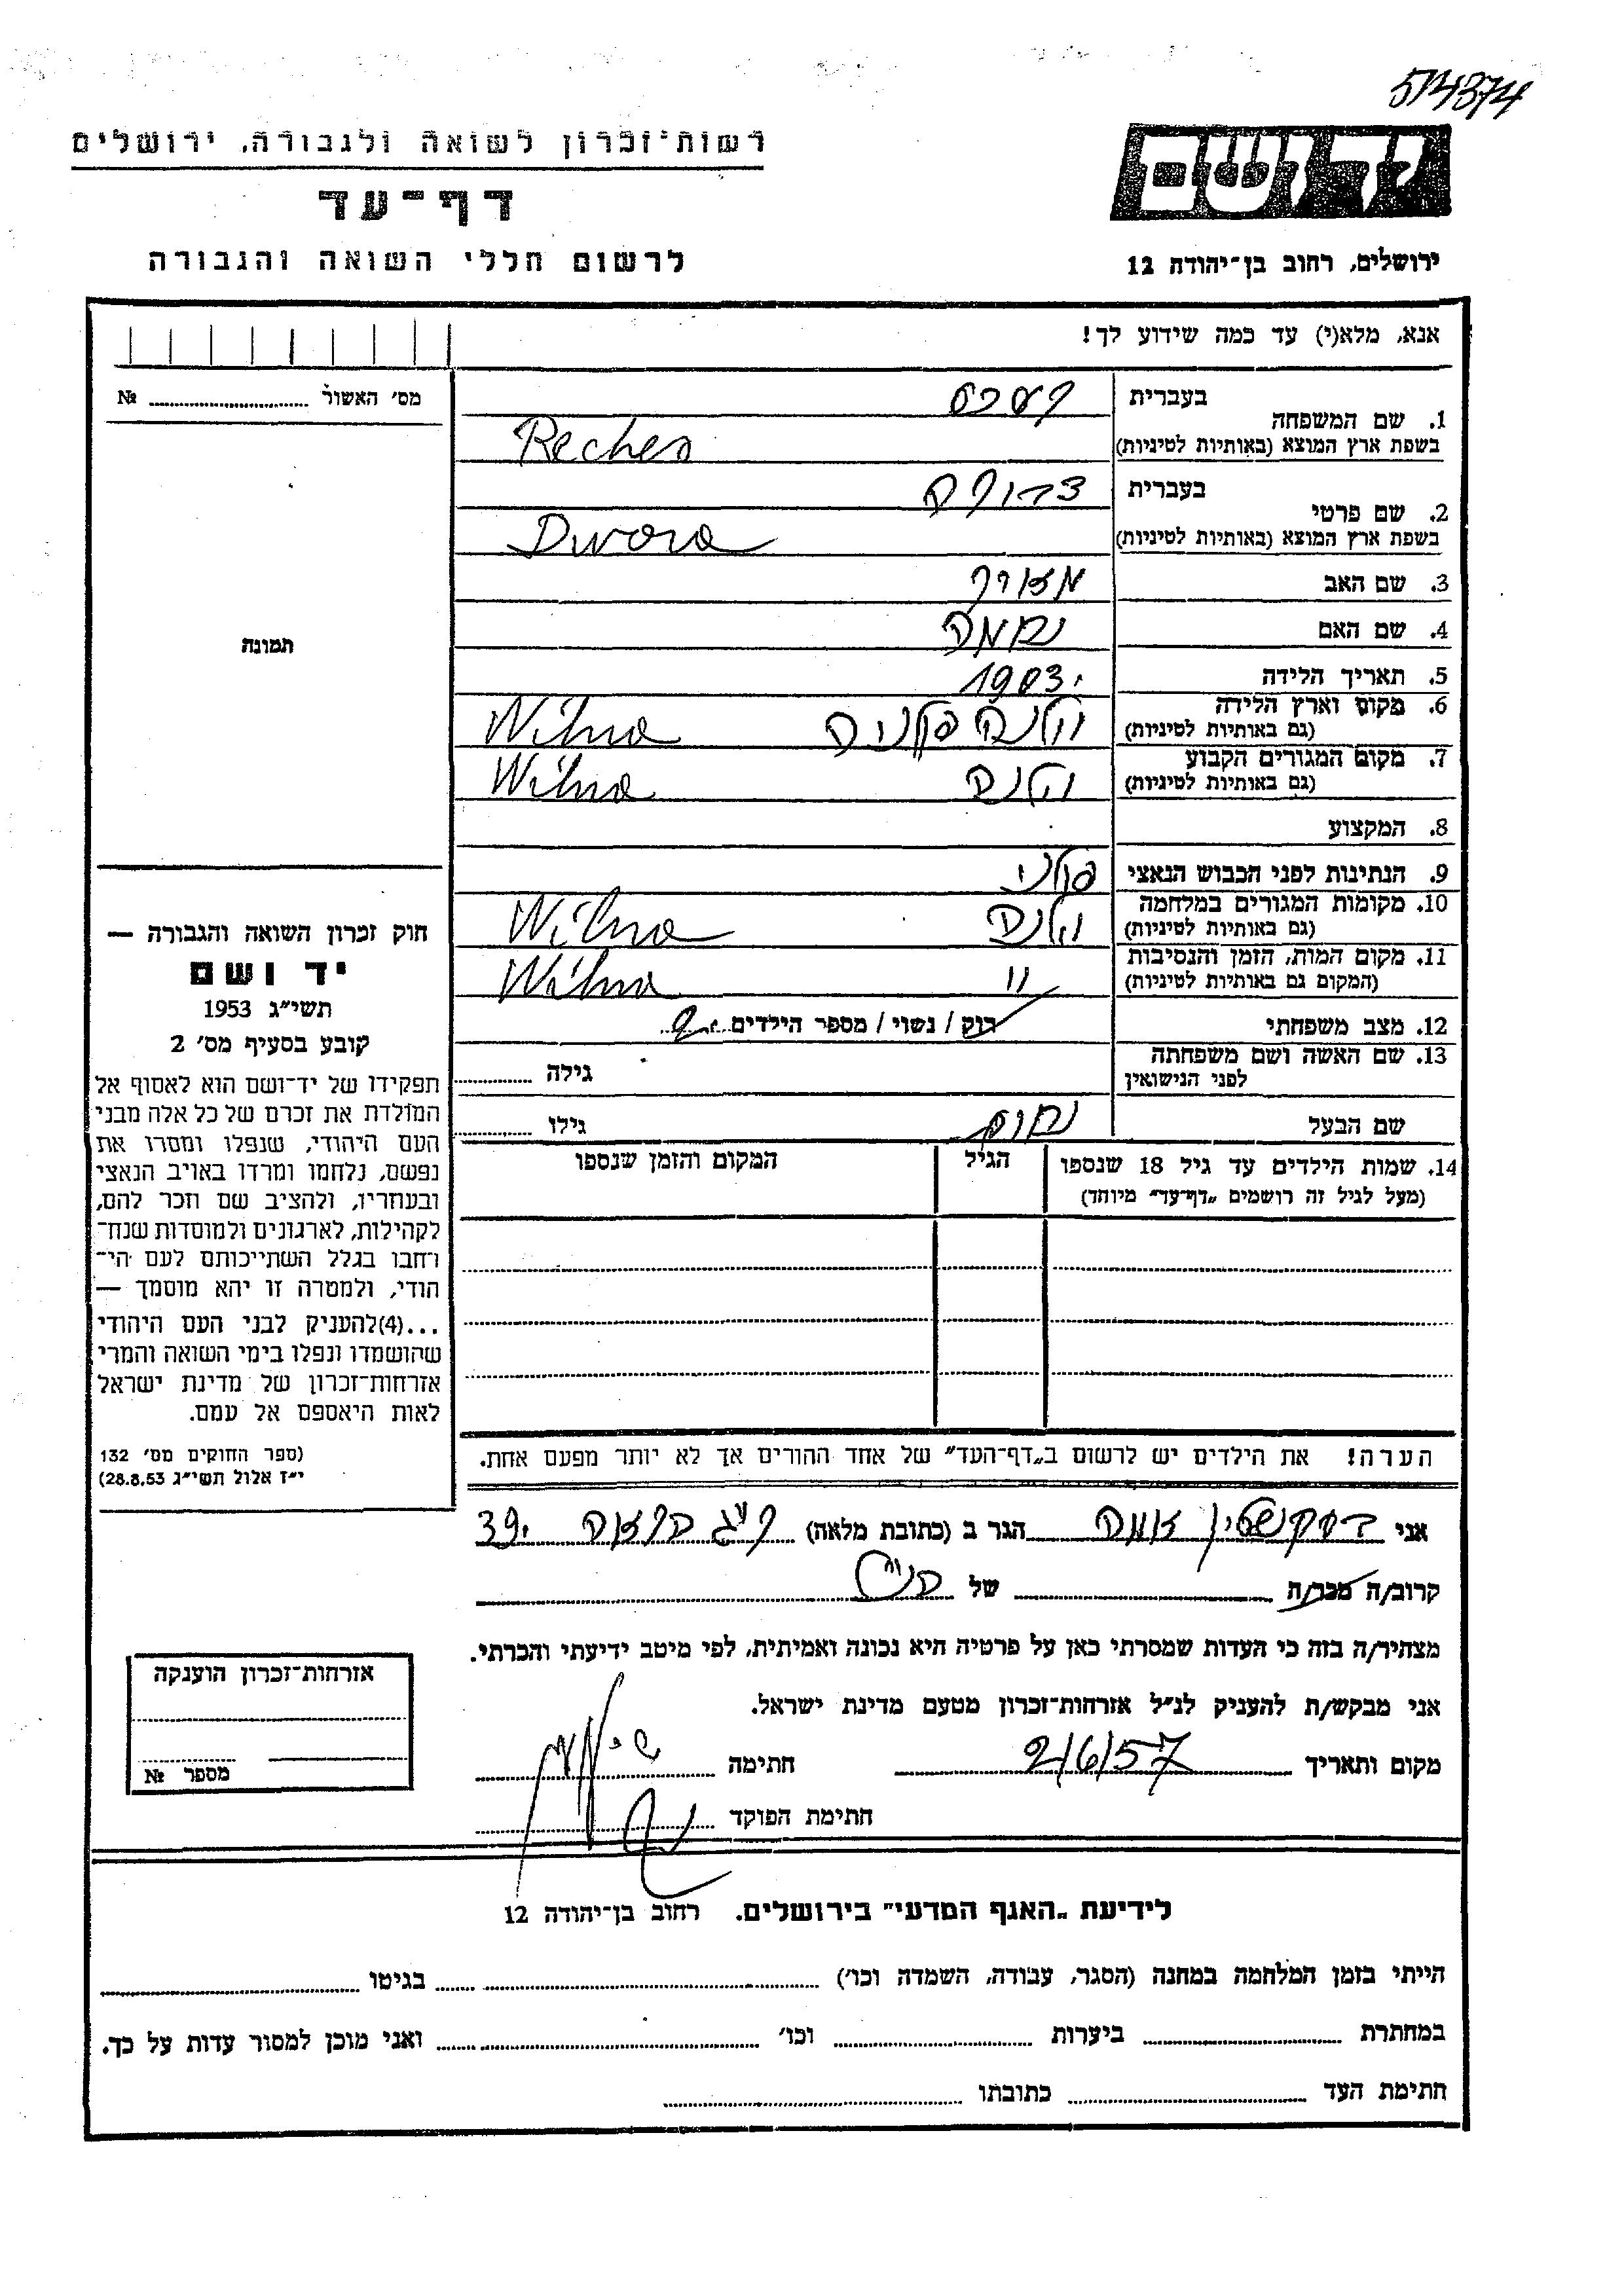 514374
יד ושם
ירושלים, רחוב בן־יהודה 12
רשות־זכרון לשואה ולגבורה, ירושלים
דף־עד
לרשום חללי השואה והגבורה
אנא, מלא(י) עד כמה שידוע לך!
מס׳ האשור № ........
1. שם המשפחה
בעברית
בשפת ארץ המוצא (באותיות לטיניות) Reches
2. שם פרטי
בעברית
בשפת ארץ המוצא (באותיות לטיניות) Dwora
3. שם האב
4. שם האם נחמה
5. תאריך הלידה 1903.
6. מקום וארץ הלידה
(גם באותיות לטיניות) וילנה פולניה Wilna
7. מקום המגורים הקבוע
(גם באותיות לטיניות) וילנה Wilna
8. המקצוע
9. הנתינות לפני הכבוש הנאצי פולני
10. מקומות המגורים במלחמה
(גם באותיות לטיניות) וילנה Wilna
11. מקום המות, הזמן והנסיבות
(המקום גם באותיות לטיניות) " Wilna
12. מצב משפחתי רוק / נשוי / מספר הילדים 2
13. שם האשה ושם משפחתה
לפני הנישואין גילה ........
שם הבעל נחום גילו ........
14. שמות הילדים עד גיל 18 שנספו
(מעל לגיל זה רושמים „דף־עד" מיוחד)
הגיל
המקום והזמן שנספו
הערה! את הילדים יש לרשום ב„דף־העד" של אחד ההורים אך לא יותר מפעם אחת.
תמונה
חוק זכרון השואה והגבורה —
יד ושם
תשי״ג 1953
קובע בסעיף מס׳ 2
תפקידו של יד־ושם הוא לאסוף אל
המולדת את זכרם של כל אלה מבני
העם היהודי, שנפלו ומסרו את
נפשם, נלחמו ומרדו באויב הנאצי
ובעוזריו, ולהציב שם וזכר להם,
לקהילות, לארגונים ולמוסדות שנח־
רבו בגלל השתייכותם לעם הי־
הודי, ולמטרה זו יהא מוסמך —
...(4)להעניק לבני העם היהודי
שהושמדו ונפלו בימי השואה והמרי
אזרחות־זכרון של מדינת ישראל
לאות היאספם אל עמם.
(ספר החוקים מס׳ 132
י״ז אלול תשי״ג 28.8.53)
אני הגר ב (כתובת מלאה) 39.
קרוב/ה מכר/ה של
מצהיר/ה בזה כי העדות שמסרתי כאן על פרטיה היא נכונה ואמיתית, לפי מיטב ידיעתי והכרתי.
אני מבקש/ת להעניק לנ״ל אזרחות־זכרון מטעם מדינת ישראל.
מקום ותאריך 2/6/57 חתימה
חתימת הפוקד
אזרחות־זכרון הוענקה
מספר №
לידיעת „האגף המדעי" בירושלים. רחוב בן־יהודה 12
הייתי בזמן המלחמה במחנה (הסגר, עבודה, השמדה וכו׳) ........ בגיטו ........
במחתרת ........ ביערות ........ וכו׳ ........ ואני מוכן למסור עדות על כך.
חתימת העד ........ כתובתו ........